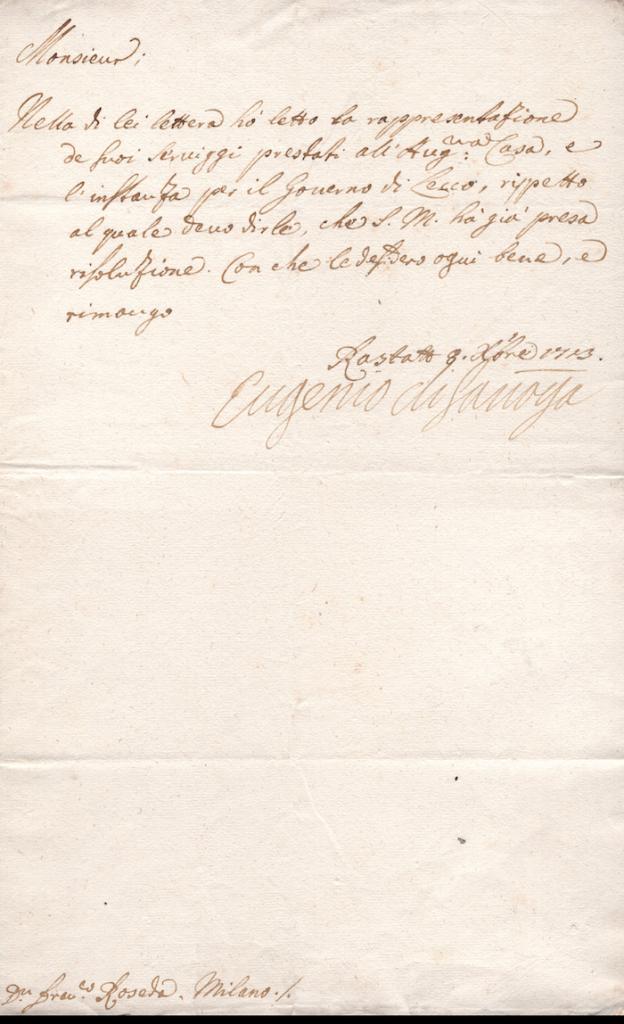 Monsieur;
Nella di lei lettera hò letto la rappresentazione
de suoi seruiggi prestati all'Aug.ma Casa, e
l'instanza per il Gouerno di Lecco, rispetto
al quale deuo dirle, che S. M. hà già presa
risoluzione. Con che le desidero ogni bene, e
rimango
Rastatt 8. Xbre 1713.
Eugenio di Sauoya
Dn Franco Roseda. Milano ./.